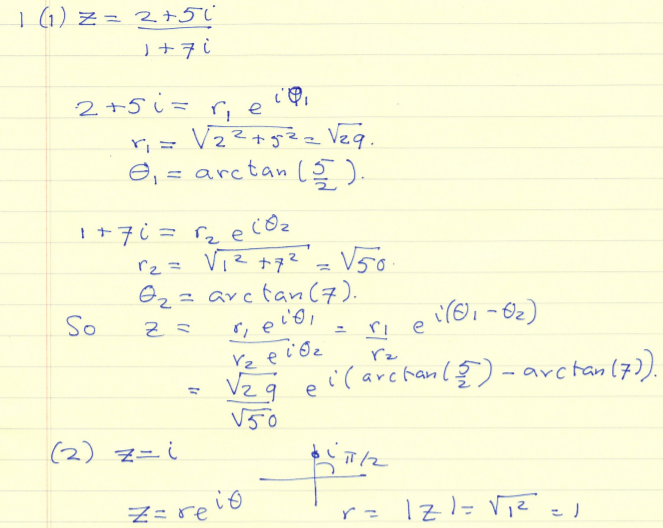 1 (1) z = (2+5i)/(1+7i)
2+5i = r₁ e^{iθ₁}
r₁ = √(2²+5²) = √29.
θ₁ = arctan(5/2).
1+7i = r₂ e^{iθ₂}
r₂ = √(1²+7²) = √50.
θ₂ = arctan(7).
So z = (r₁ e^{iθ₁})/(r₂ e^{iθ₂}) = r₁/r₂ e^{i(θ₁-θ₂)}
= √29/√50 e^{i(arctan(5/2) - arctan(7))}.
(2) z = i
i π/2
z = re^{iθ} r = |z| = √1² = 1